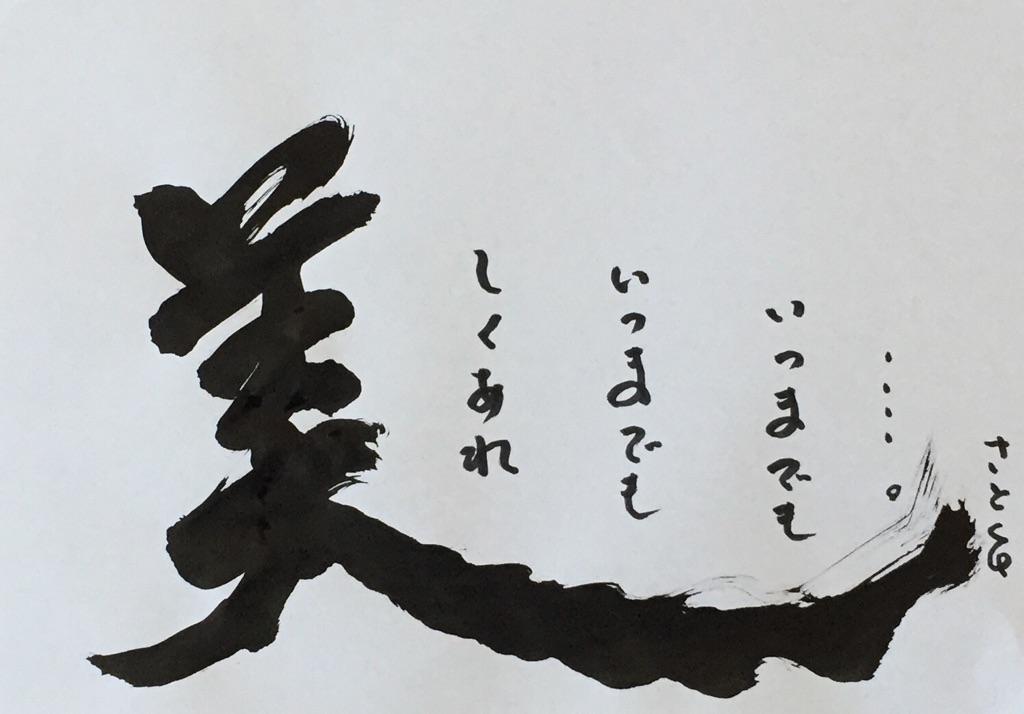 美
しくあれ
いつまでも
いつまでも
・・・・。